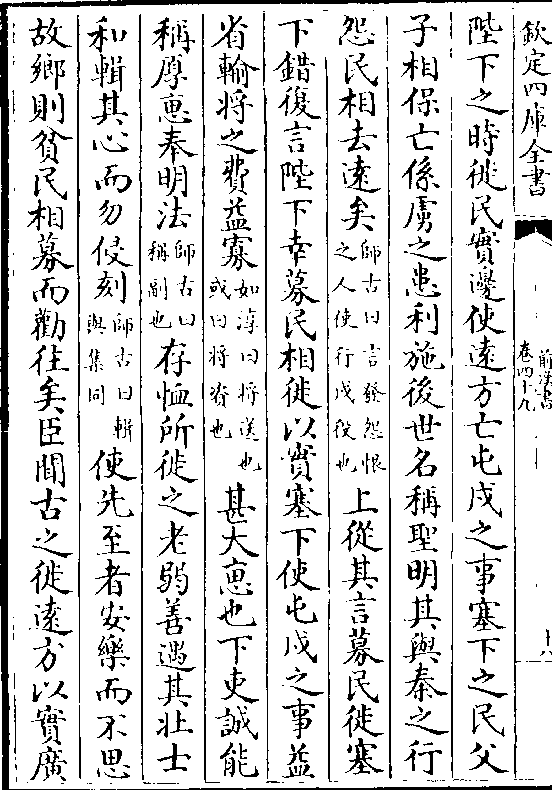 欽定四庫全書
前漢書
卷四十九
十八
陛下之時徙民實邊使遠方亡屯戍之事塞下之民父
子相保亡係虜之患利施後世名稱聖明其與秦之行
怨民相去遠矣師古曰言發怨恨之人使行戍役也上從其言募民徙塞
下錯復言陛下幸募民相徙以實塞下使屯戍之事益
省輸將之費益寡如淳曰將送也或曰將資也甚大惠也下吏誠能
稱厚惠奉明法師古曰稱副也存恤所徙之老弱善遇其壯士
和輯其心而勿侵刻師古曰輯與集同使先至者安樂而不思
故鄉則貧民相募而勸往矣臣聞古之徙遠方以實廣